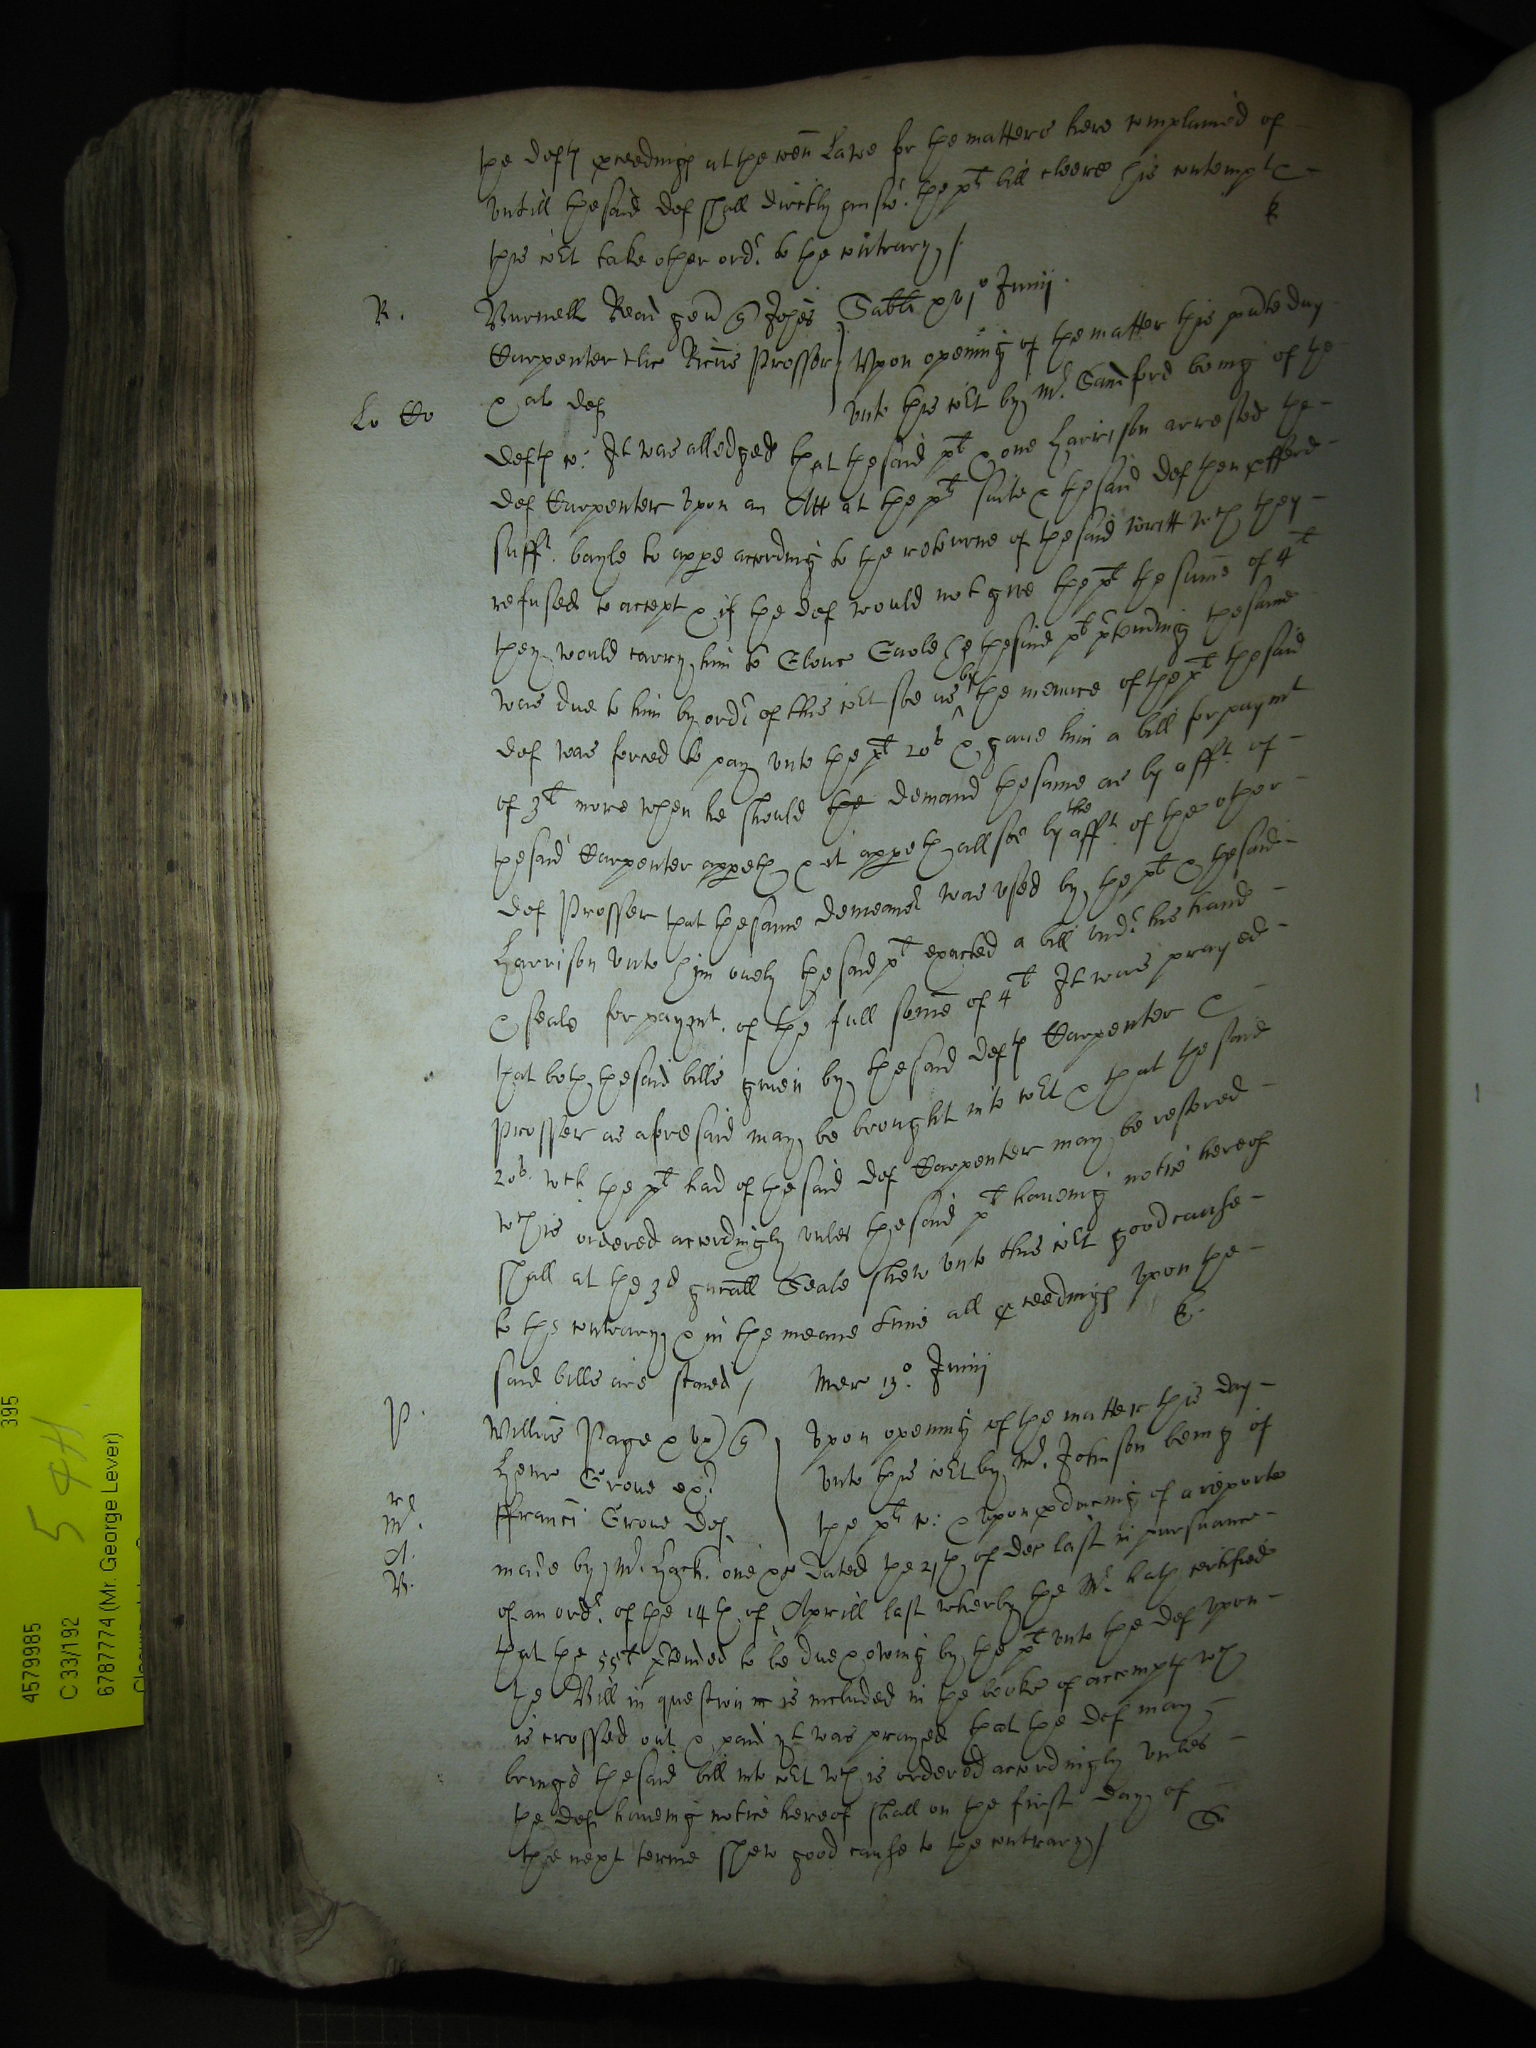 the deftes proceedings at the com̄on Lawe for the matters here complained of
vntill the said def shall directly answ: the plts bill cleere his contempt &
this cot take other ordr to the contrary /
R
R. Burnell Read gen̄ Johēs Sabti xvjo Junij
Carpenter clic Ricūs Prosser Vpon opening of the matter this p̄nte day
Lo Co & al def vnto this cot by Mr Sandford being of the
deftes co: It was alledged that the said plt & one Harrison arrested the
def Carpenter vpon an Att at the plts suite & the said def then profferd
sufft. bayle to appe according to the retourne of the said writt wch they
refused to accept & if the def would not give the plt the sum̄e of 4l
they would carry him to Glouc Gaole he the said plt p̄tending the same
was due to him by ordr of this cot soe as by the menace of the plt the said
def was forced to pay vnto the plt 20s & gaue him a bill for paymt
of 3l more when he should the demand the same as by afft. of
the said Carpenter appeth & it appeth allsoe by the afft. of the other
def Prosser that the same demeanor was vsed by the plt & the said
Harrison vnto him onely the said plt exacted a bill vndr his hand
& seale for paymt. of the full som̄e of 4l It was prayed
that both the said bills given by the said deftes Carpenter &
Prosser as aforesaid may be brought into cot & that the said
20s. wch the plt had of the said def Carpenter may be restored
wch is ordered accordingly vnles the said plt haueing notice hereof
shall at the 3d gn̄all Seale shew vnto this cot good cause
to the contrary & in the meane time all proceedings vpon the
said bills are staied / Mer 13o. Junij
R.
P. Willm̄s Page & vx Vpon opening of the matter this day
Henr Groue vnto this cot by Mr. Johnson being of
Mr. ffranc̄ Groue def the plts co: & vpon produceing of a reporte
A. made by Mr. Hack. one &c dated the 21th of Dec last in pursuance
R. of an ordr. of the 14th of Aprill last wherby the Mr. hath certified
that the 55l p̄tended to be due & oweing by the plt vnto the def vpon
the Bill in question is included in the booke of accompts wch
is crossed out & paid It was prayed that the def may
bringe the said bill into cot wch is ordered accordingly vnles
the def haueing notice hereof shall on the first day of
the next terme shew good cause to the contrary /
395
54H.
4579985
C 33/192
6787774 (Mr. George Lever)